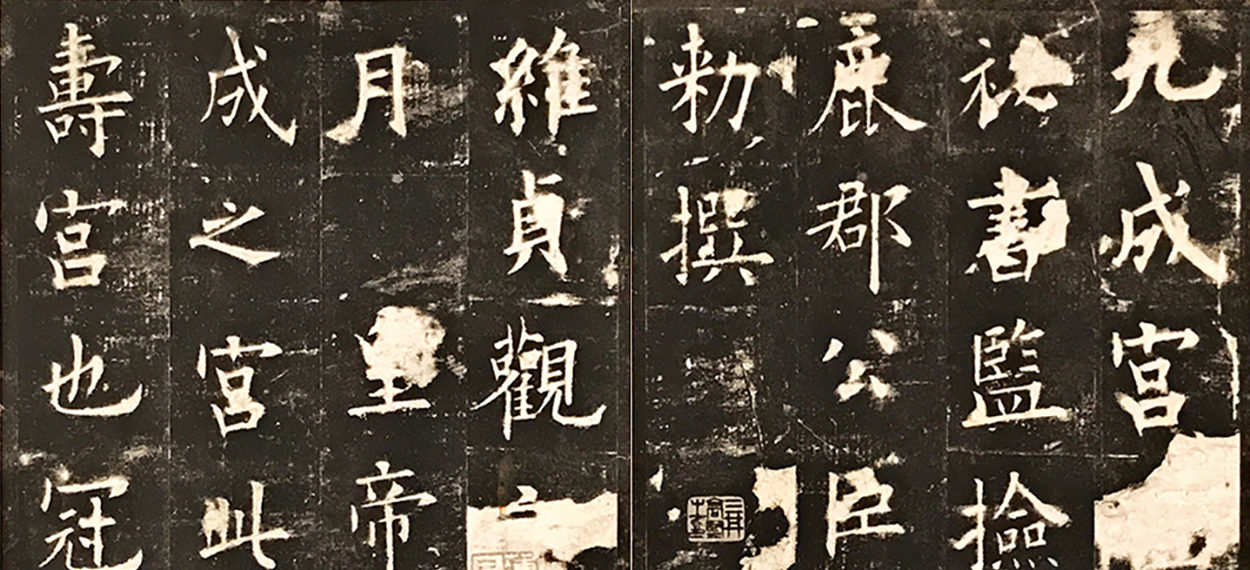 九成宮
祕書監撿
鹿郡公臣
勑撰
維貞觀
月皇帝
成之宮此
壽宮也冠